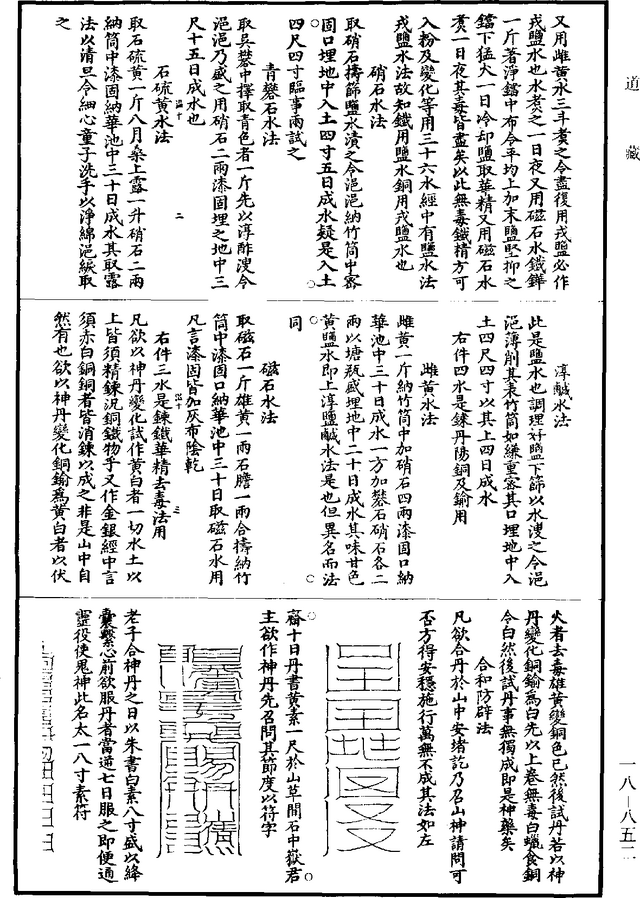 道藏
又用雌黃水三斗煮之令盡復用戎鹽必作
戎鹽水也水煮之一日夜又用磁石水鐵鏵
一斤著淨鐺中布令平均上加末鹽堅抑之
鐺下猛火一日冷却鹽取華精又用磁石水
煮一日夜其毒皆盡矣以此無毒鐵精方可
入粉及變化等用三十六水經中有鹽水法
戎鹽水法故知鐵用鹽水銅用戎鹽水也
硝石水法
取硝石擣篩鹽水漬之令浥浥納竹筒中密
固口埋地中入土四寸五日成水疑是入土
四尺四寸臨事兩試之
青礬石水法
取吳礬中擇取青色者一斤先以淳酢溲令
浥浥乃盛之用硝石二兩漆固埋之地中三
尺十五日成水也
石硫黃水法
二
取石硫黃一斤八月桑上露一升硝石二兩
納筒中漆固納華池中三十日成水其取露
法以清旦令細心童子洗手以淨綿浥綟取
之
淳鹹水法
此是鹽水也調理好鹽下篩以水溲之令浥
浥薄削其表竹筒如縑重密其口埋地中入
土四尺四寸以其上四日成水
右件四水是鍊丹陽銅及鍮用
雌黃水法
雌黃一斤納竹筒中加硝石四兩漆固口納
華池中三十日成水一方加礬石硝石各二
兩以塘瓶盛埋地中二十日成水其味甘色
黃鹽水即上淳鹽鹹水法是也但異名而法
同
磁石水法
取磁石一斤雄黃一兩石膽一兩合擣納竹
筒中漆固口納華池中三十日取磁石水用
凡言漆固皆加灰布陰乾
右件三水是鍊鐵華精去毒法用
三
凡欲以神丹變化試作黃白者一切水土以
上皆須精鍊況銅鐵物乎又作金銀經中言
須赤白銅銅者皆消鍊以成之非是山中自
然有也欲以神丹變化銅鍮爲黃白者以伏
火者去毒雄黃變銅色已然後試丹若以神
丹變化銅鍮爲白先以上卷無毒白蠟食銅
令白然後試丹事無獨成即是神藥矣
合和防辟法
凡欲合丹於山中安堵訖乃召山神請問可
否方得安穩施行萬無不成其法如左
齋十日丹書黃素一尺於山草間石中嶽君
主欲作神丹先召問其節度以符字
老子合神丹之日以朱書白素八寸盛以絳
囊繫心前欲服丹者當逆七日服之即便通
靈役使鬼神此名太一八寸素符
一八－八五二